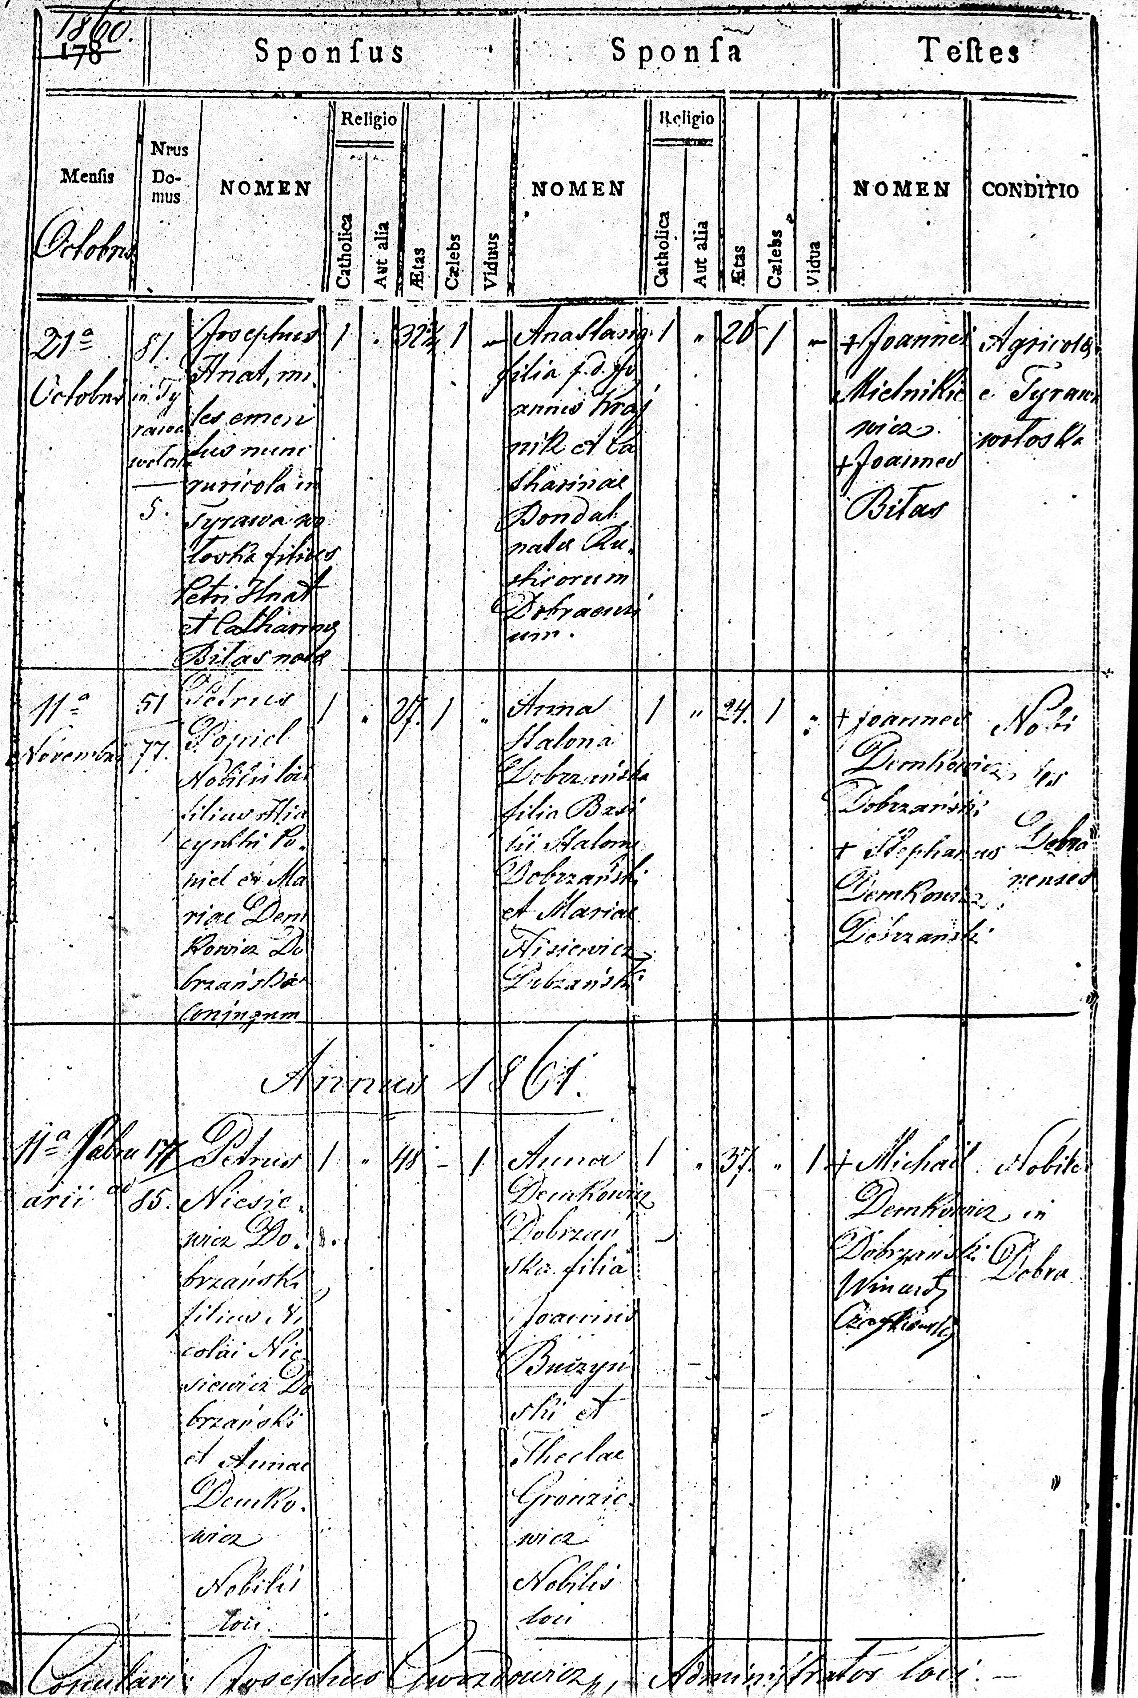 1860.
178
Sponsus
Sponsa
Testes
Mensis
Octobris
Nrus
Do-
mus
NOMEN
Religio
Catholica
Aut alia
Ætas
Cælebs
Viduus
NOMEN
Religio
Catholica
Aut alia
Ætas
Cælebs
Vidua
NOMEN
CONDITIO
21a
Octobris
81
in Ty
rawa
wołoska
5.
Josephus
Hnat, mi
les emeri
tus nunc
ruricola in
Tyrawa wo
łoska filius
Petri Hnat
et Catharinæ
Biłas natæ
1 " 32 1 "
filia
annis Kraj
nik et Ca
tharinae
Bondal
natæ Ru
sticorum
1 " 26 1 "
+ Joannes
Mielnikie
wicz
+ Joannes
Biłas
Agricolæ
e Tyrawa
wołoska
11a
Novembris
51
77.
Petrus
Popiel
Nobilis loci
filius Hia
cynthi Po.
piel et Ma
riae Dem
kowicz Do
brzańska
conjugum
1 " 27. 1 "
Anna
Halona
Dobrzańska
filia Basi
lii Halona
Dobrzański
et Mariae
1 " 24. 1 "
+ Joannes
Demkowicz
Dobrzański
+ Stephanus
Demkowicz
Dobrzański
Nobi
les
Dobra
nenses
Annus 1861.
11a Febru
arii
177
ad
85.
Petrus
Niesie.
wicz Do.
brzański
filius Ni
colai Nie
siewicz Do
brzański
et Annae
Demko.
wicz
Nobilis
loci.
1 " 48 - 1
Anna
Demkowicz
Dobrzań
ska filia
Joannis
Buczyń
ski et
Theclae
Gronzie.
wicz
Nobilis
loci
1 " 37. " 1
+ Michael
Demkowicz
Dobrzański
Nobiles
in
Dobra
Josephus Gwozdowicz Administrator loci. -